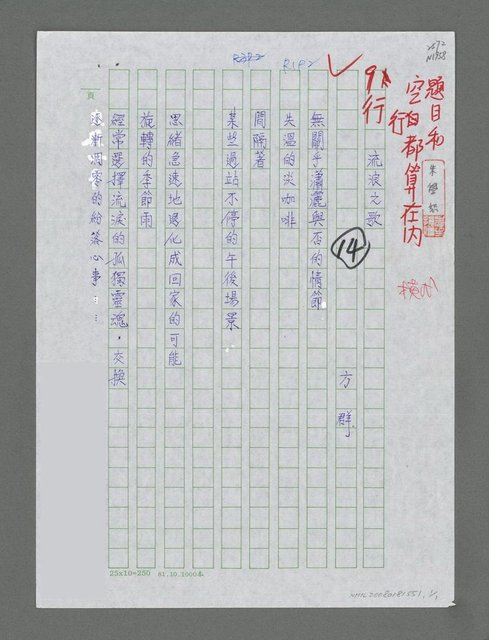 題目和
空白都算在內
行
9行
R1P2
14
流浪之歌
方 群
無關乎瀟灑與否的情節
失溫的淡咖啡
間隔著
某些過站不停的午後場景
思緒急速地退化成回家的可能
旋轉的季節雨
經常選擇流淚的孤獨靈魂，交換
逐漸凋零的紛落心事……
頁
25x10=250 81.10.1000本